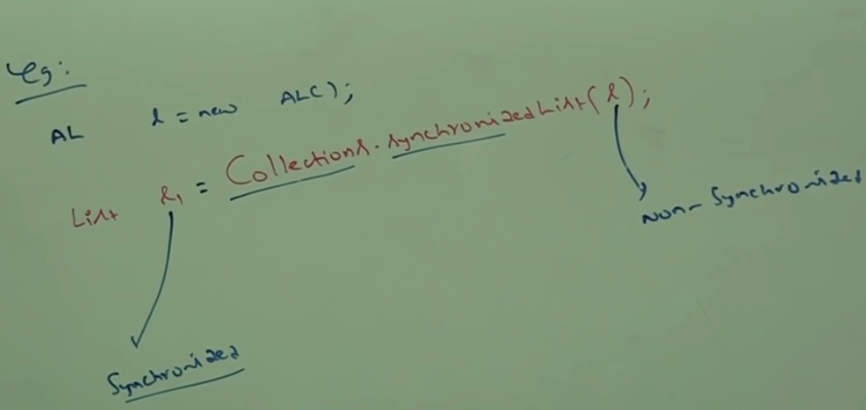 Eg:
AL l = new AL();
List l1 = Collections.synchronizedList(l);
Non-Synchronized
Synchronized